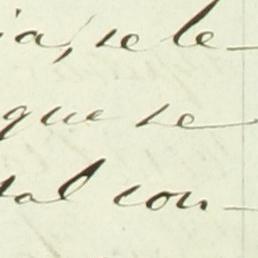 ia, se le
que se
tal con-